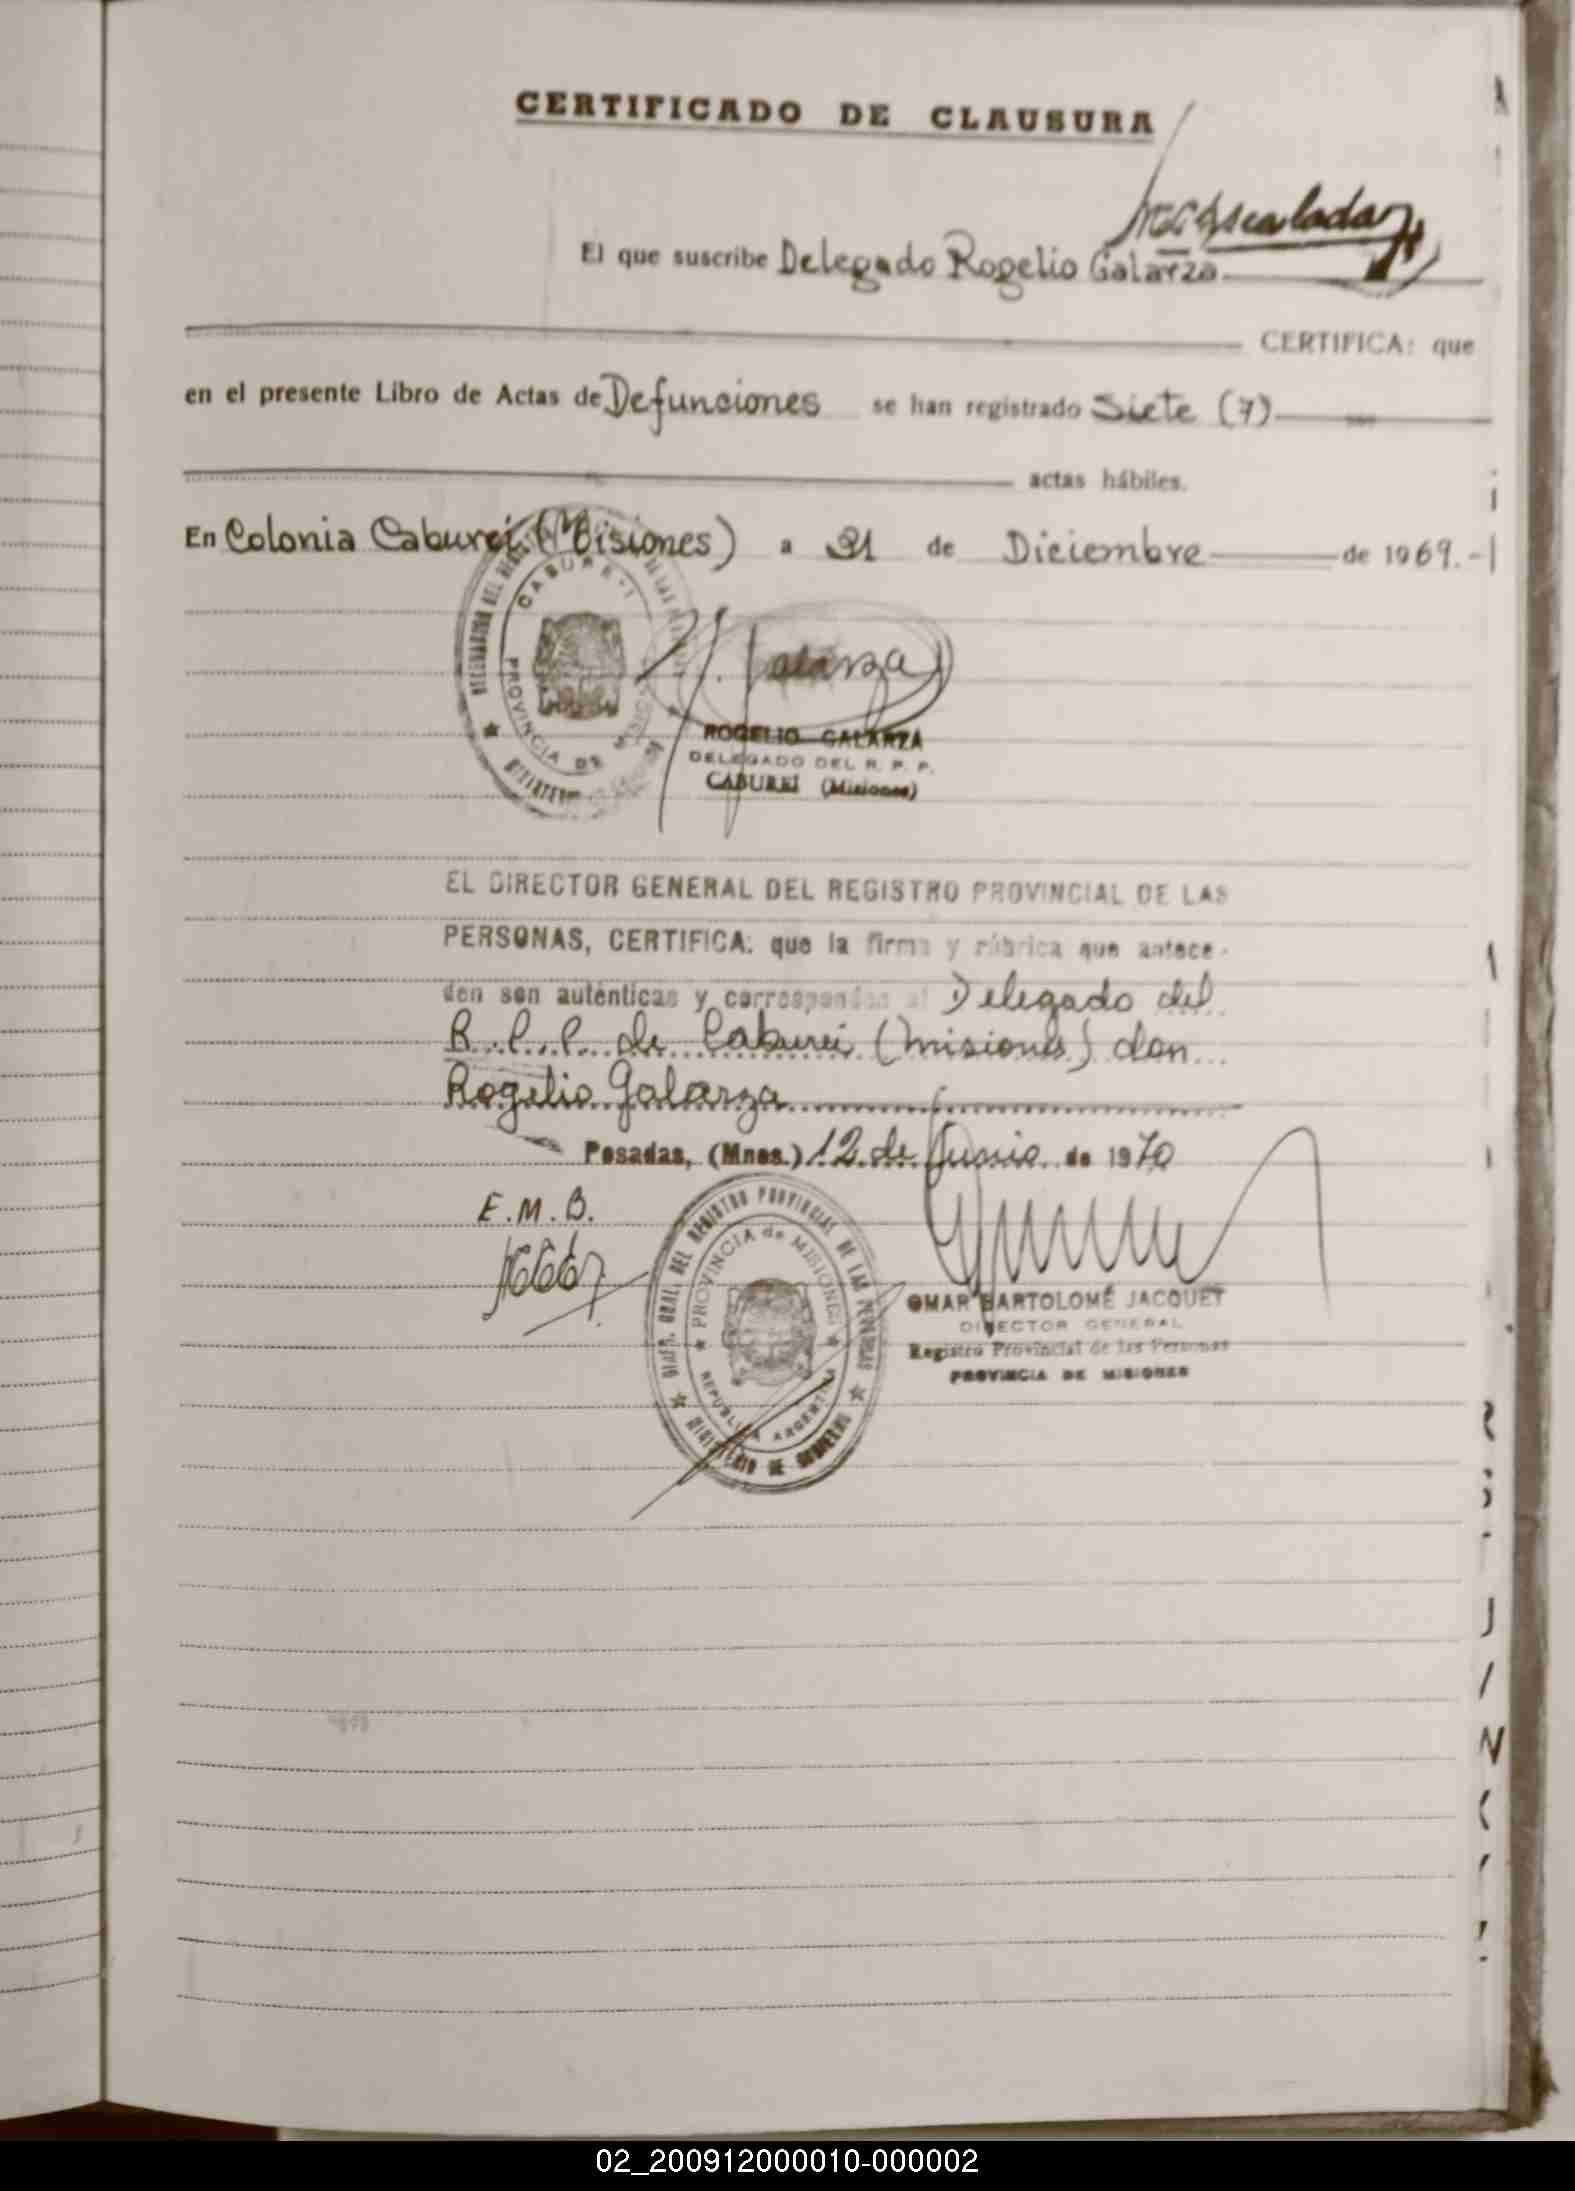 CERTIFICADO DE CLAUSURA
El que suscribe Delegado Rogelio Galarza
CERTIFICA: que
en el presente Libro de Actas de Defunciones se han registrado Siete (7)
actas hábiles.
En Colonia Caburei (Misiones) a 31 de Diciembre de 1969.-
CABURE-I
PROVINCIA DE MISIONES
Galarza
ROGELIO GALARZA
DELEGADO DEL R. P. P.
CABUREI (Misiones)
EL DIRECTOR GENERAL DEL REGISTRO PROVINCIAL DE LAS
PERSONAS, CERTIFICA: que la firma y rúbrica que antece-
den son auténticas y corresponden al Delegado del
R. P. P. de Caburei (misiones) don
Rogelio Galarza
Posadas, (Mnes.) 12 de Junio de 1970
E.M.B.
DIREC. GRAL. DEL REGISTRO PROVINCIAL DE LAS PERSONAS
PROVINCIA de MISIONES
REPUBLICA ARGENTINA
MINISTERIO DE GOBIERNO
OMAR BARTOLOMÉ JACQUET
DIRECTOR GENERAL
Registro Provincial de las Personas
PROVINCIA DE MISIONES
02_200912000010-000002